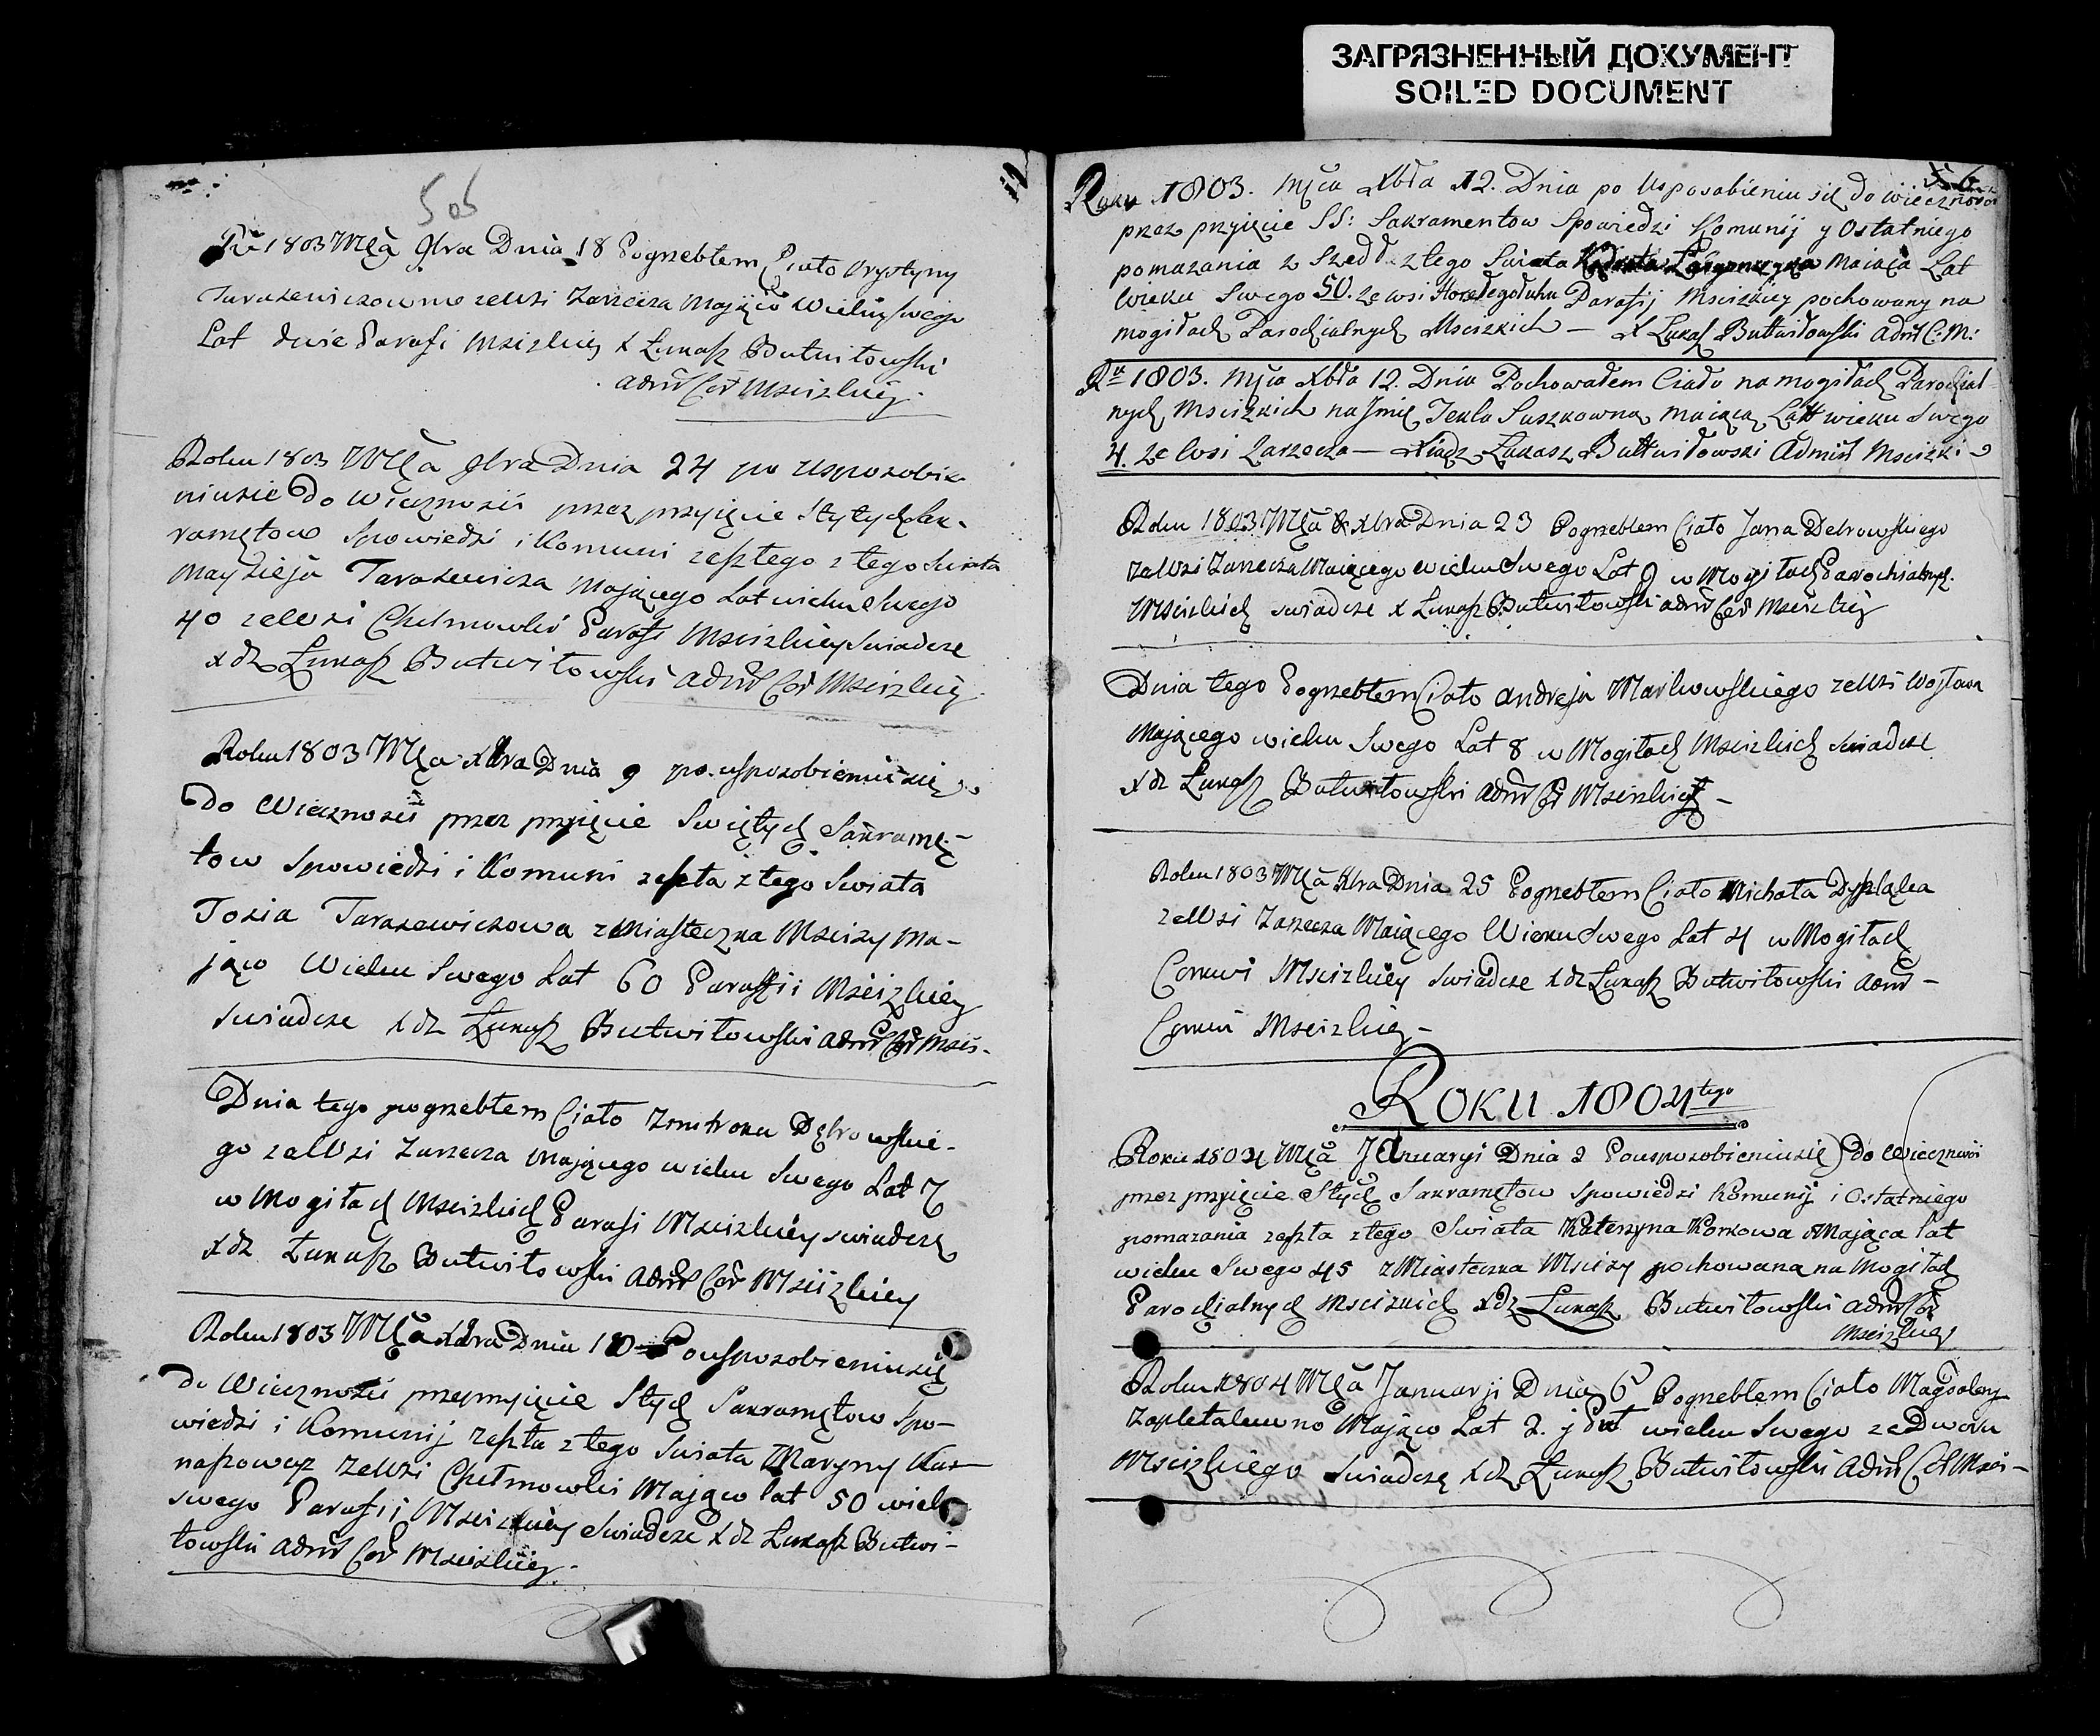 ЗАГРЯЗНЕННЫЙ ДОКУМЕНТ
SOILED DOCUMENT
505
Ru 1803 Mca 9bra Dnia 18 Pogrzebłem Ciało Krystyny
Tarasewiczowno zewsi Zarzecza Mająco Wieku swego
Lat dwie Parafi Mscizkiey X Łukasz Butwiłowski
Adm Cer Mscizkiey.
Roku 1803 Mca 9bra Dnia 24 po usposobie-
niusie do Wiecznosci przez przyięcie Stytych Sak-
ramętow Spowiedzi i Komuni zeszłego z tego Swiata
Maydzieja Tarasewicza Mającego Lat wieku Swego
40 zewsi Chełmowki Parafi Mscizkiey Swiadcze
xdz Łukasz Butwiłowski Adm Cer Mscizkiey
Roku 1803 Mca xbra Dnia 9 po usposobieniusię
do Wiecznosci przez przyięcie Swiętych Sakramę-
tow Spowiedzi i Komuni zeszła z tego Swiata
Tozia Tarasewiczowa z Miasteczka Mscizy Ma-
jąco Wieku Swego Lat 60 Parafii Mscizkiey
swiadcze xdz Łukasz Butwiłowski Adm Cer Mscis-
Dnia tego pogrzebłem Ciało Zmitroka Dębrowskie-
go zewsi Zarzecza Mającego wieku Swego Lat 7
w Mogiłach Mscizkich Parafi Mscizkiey swiadczę
xdz Łukasz Butwiłowski Adm Cer Mscizkiey
Roku 1803 Mca xbra Dnia 10 Pousposobieniusię
do Wiecznosci przezprzyięcie Stych Sakramętow Spo-
wiedzi i Komunij zeszła z tego Swiata Maryny
zewsi Chełmowki Mająco lat 50 wieku
swego Parafij Mscizkiey Swiadcze xdz Łukasz Butwi-
łowski Adm Cer Mscizkiey.
Roku 1803. Mca Xbra 12. Dnia po Usposobieniu się do wiecznosci
przez przyięcie SS: Sakramentow Spowiedzi Komunij y Ostatniego
pomazania z Szedł z tego Swiata maiąca Lat
Wieku Swego 50. ze wsi Parafij Mscizkiey pochowany na
mogiłach Parochialnych Mscizkich — X Łukasz Butwiłowski Adm C: M:
Ru 1803. Mca Xbra 12. Dnia Pochowałem Ciało na mogiłach Parochial-
nych Mscizkich na Jmię Tekla Suszkowna maiąca Latt wieku Swego
4. ze wsi Zarzecza — Xiądz Łukasz Buttwiłowski Admin Mscizki
Roku 1803 Mca Xbra Dnia 23 Pogrzebłem Ciało Jana Debrowskiego
zewsi Zarzecza Maiącego wieku Swego Lat 9 w Mogiłach Parochialnych.
Mscizkich swiadcze x Łukasz Butwiłowski adm Cer Mscizkiey
Dnia tego Pogrzebłem Ciało Andreja Markowskiego zewsi Wojława
Mającego wieku Swego Lat 8 w Mogiłach Mscizkich swiadcze
xdz Łukasz Butwiłowski Adm Cer Mscizkiey –
Roku 1803 Mca Xbra Dnia 25 Pogrzebłem Ciało Michała
zewsi Zarzecza Maiącego Wieku Swego Lat 4 w Mogiłach
Cerkwi Mscizkiey Swiadcze xdz Łukasz Butwiłowski Adm –
Cerkwi Mscizkiey –
ROKU 1804tego
Roku 1804 Mca Januaryi Dnia 2 Pousposobieniusię do Wiecznosci
przez przyięcie Stych Sakramętow Spowiedzi Komunij i Ostatniego
pomazania zeszła z tego Swiata Katerzyna Korkowa Mająca lat
wieku Swego 45 z Miasteczka Mscizy pochowana na Mogiłach
Parochialnych Mscizkich xdz Łukasz Butwiłowski Adm Cer
Mscizkiey
Roku 1804 Mca Januarji Dnia 6 Pogrzebłem Ciało Magdaleny
Zapletalowno Mająco Lat 2. j wieku Swego ze Dworu
Mscizkiego Swiadczę xdz Łukasz Butwiłowski Adm Cer Msci–